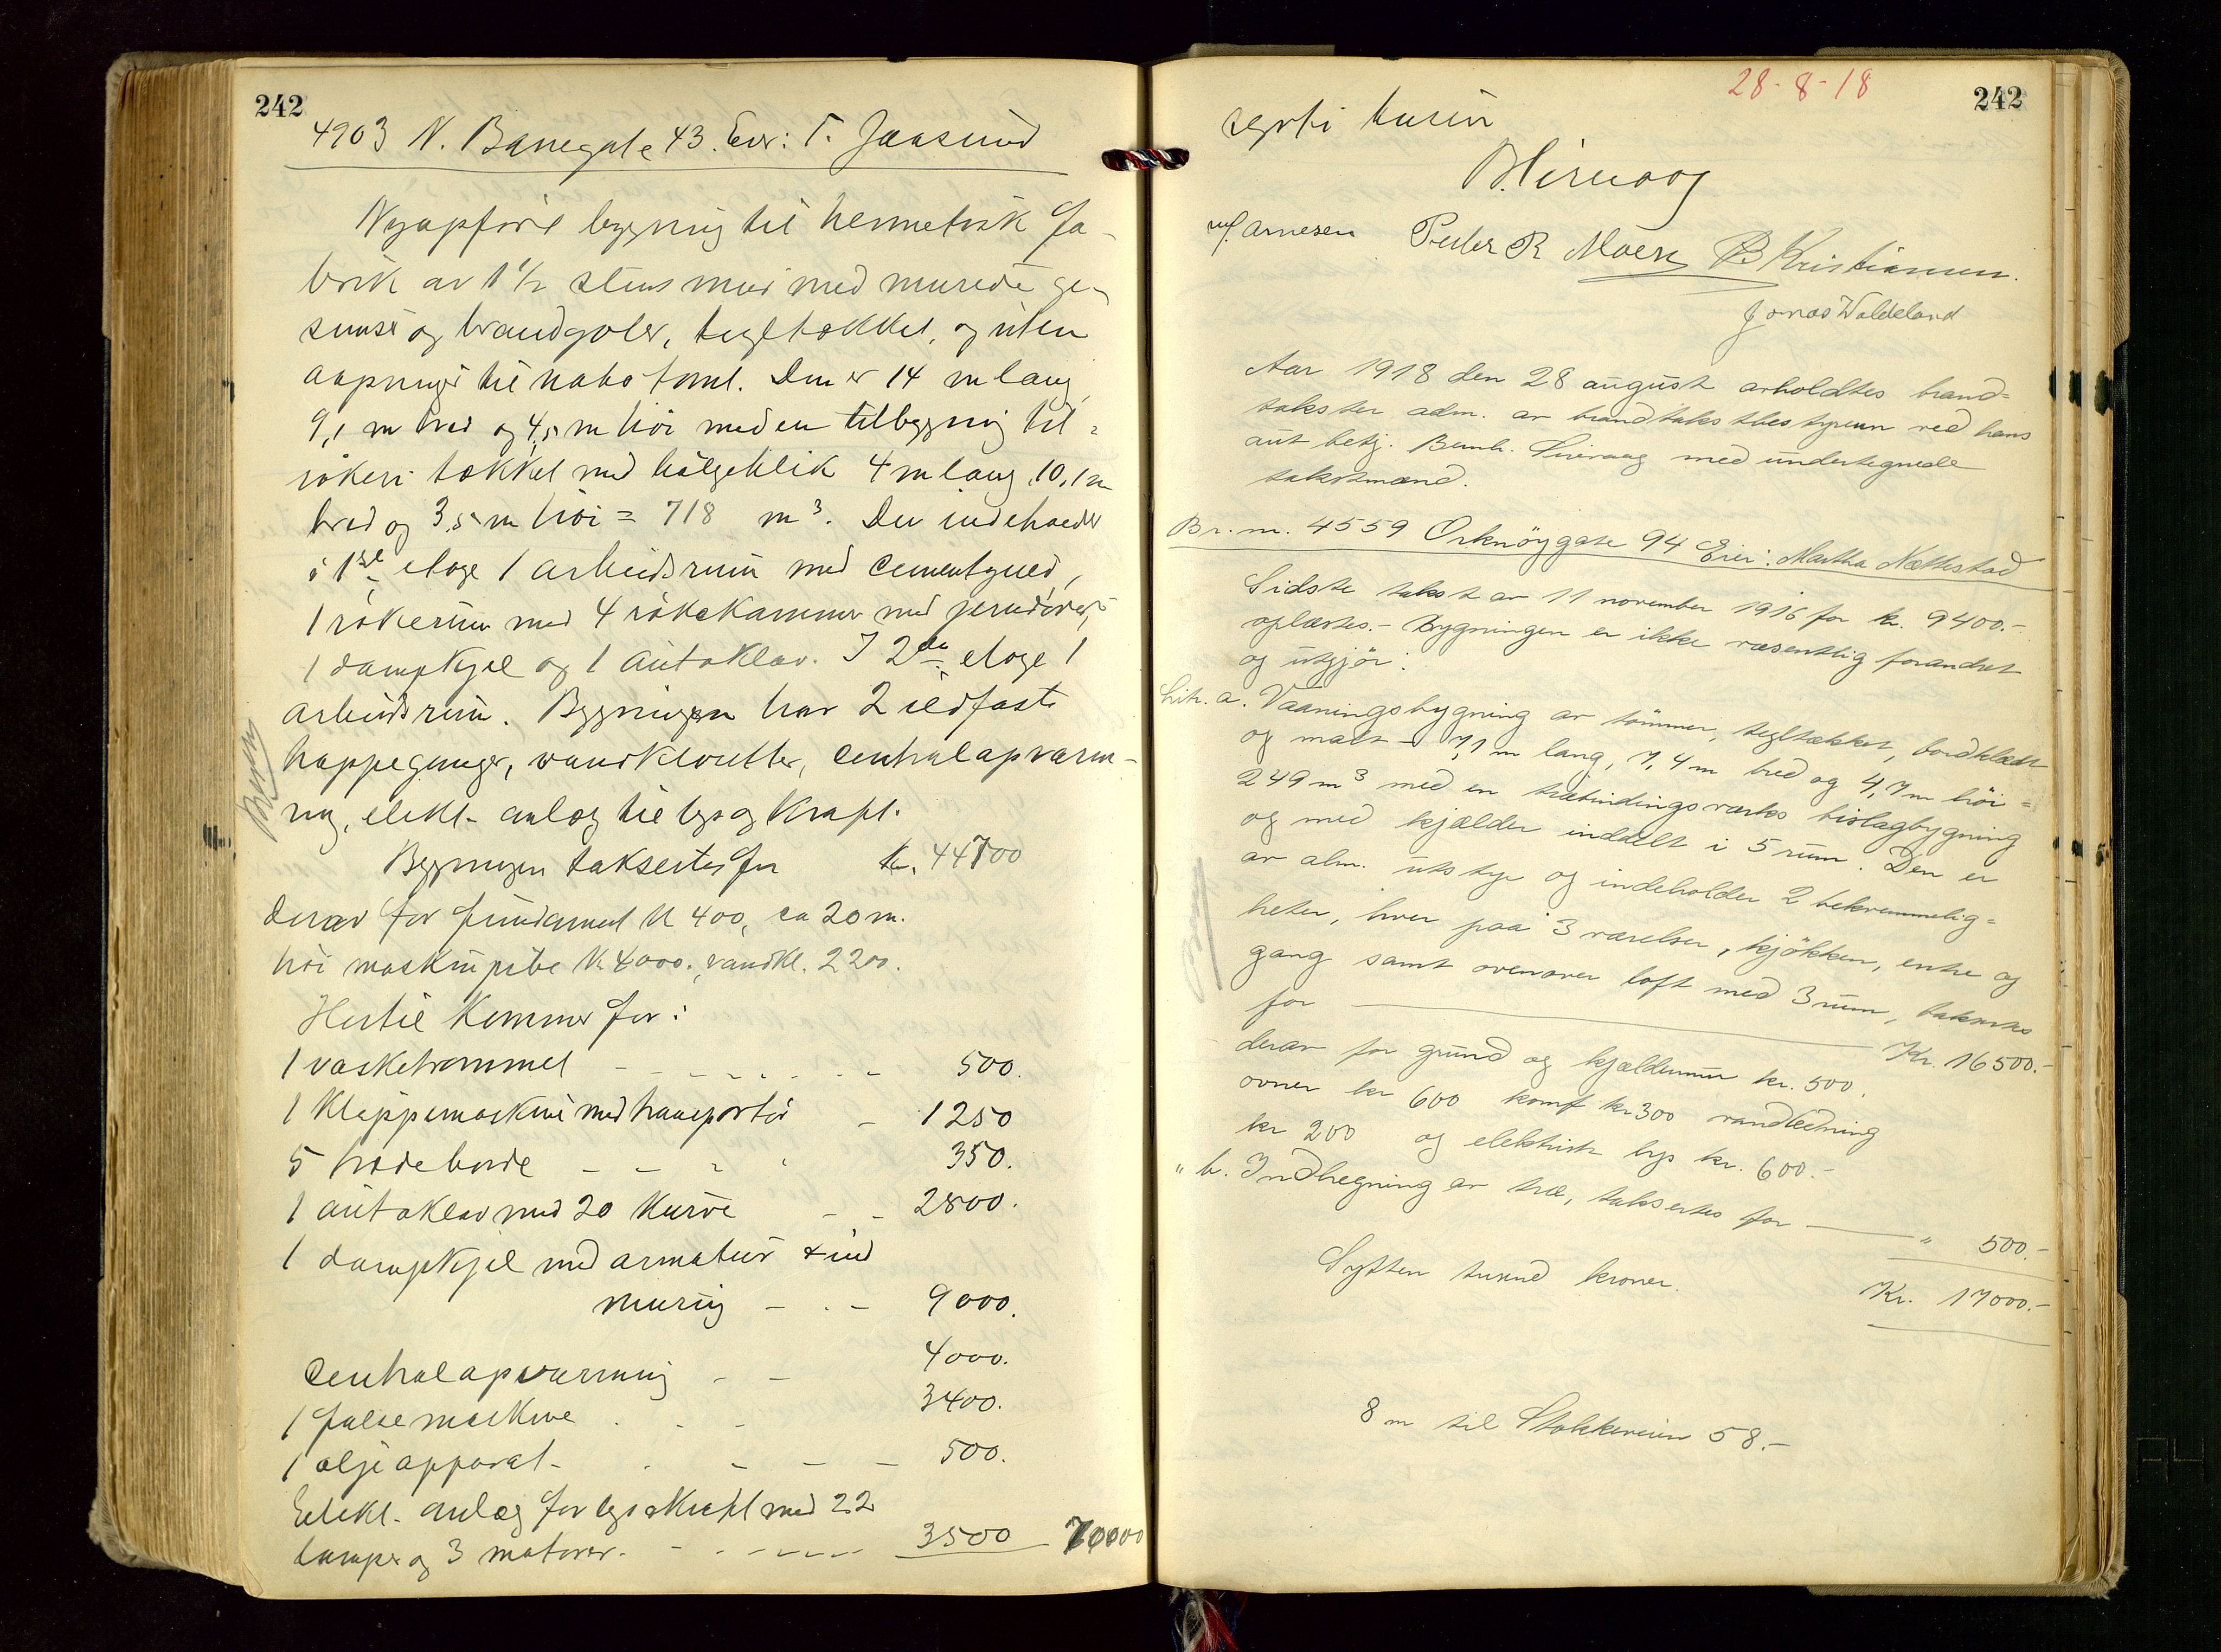 242
4903 N. Banegate 43. Eier: T. Jaasund
Nyopført bygning til hermetikk fa-
brik av 1 1/2 stens mur med murede ge-
simser og brandgavler, tegltækket, og uten
aapninger til nabotomt. Den er 14 m lang,
9,1 m bred og 4,5 m høi med en tilbygning til
røkeri tækket med bølgeblik 4 m lang, 10,1 m
bred og 3,5 m høi = 718 m³. Den indeholder
i 1ste etage 1 arbeidsrum med cementgulv,
1 røkerum med 4 røkekammer med jerndører,
1 dampkjel og 1 autoklav. I 2den etage 1
arbeidsrum. Bygningen har 2 ildfaste
trappeganger, vandklosetter, centralopvarm-
ning, elekt. anlæg til lys og kraft.
Bygningen taksertes for kr. 44700
derav for fundament kr 400, ca 20 m.
høi maskinpibe kr 4000., vandkl. 2200.
Hertil kommer for:
1 vasketrommel - - - - 500.
1 klippemaskine med transportør - 1250
5 træde borde - - - 350.
1 autoklav med 20 kurve - - 2800.
1 dampkjel med armatur & ind
muring - - - 9000.
Centralopvarmning - - 4000.
1 false maskine - - - 3400.
1 olje apparat - - - - 500.
Elekt. anlæg for lys & kraft med 22
lamper og 3 motorer. - - - - 3500 70000
28-8-18
242
sytti tusin
Jonas Waldeland
Peder R Moen B Kristiansen.
Arnesen
Aar 1918 den 28 august avholdtes brand=
takster adm. av brandtakstbestyreren ved hans
aut betj. Bernh. med undertegnede
takstmænd.
Br. nr. 4559 Orknøygate 94 Eier: Martha Nættestad
Sidste takst av 11 november 1916 for kr. 9400.-
oplæstes.- Bygningen er ikke væsentlig forandret
og utgjør:
Litr. a. Vaaningsbygning av tømmer, tegltækket, bordklædt
og malt - 7,1 m lang, 7,4 m bred og 4,7 m høi =
249 m³ med en træbindingsverks bislagbygning
og med kjælder inddelt i 5 rum. Den er
av alm. utstyr og indeholder 2 bekvemmelig=
heter, hver paa 3 værelser, kjøkken, entre og
gang samt ovenover loft med 3 rum, taksertes
for Kr. 16500.-
derav for grund og kjælderrum kr. 500,
ovner kr 600 komf kr 300 vandledning
kr 200 og elektrisk lys kr. 600.-
" b. Indhegning av træ, taksertes for " 500.-
Sytten tusind kroner. Kr. 17000.-
8 m til Stokkeveien 58.-